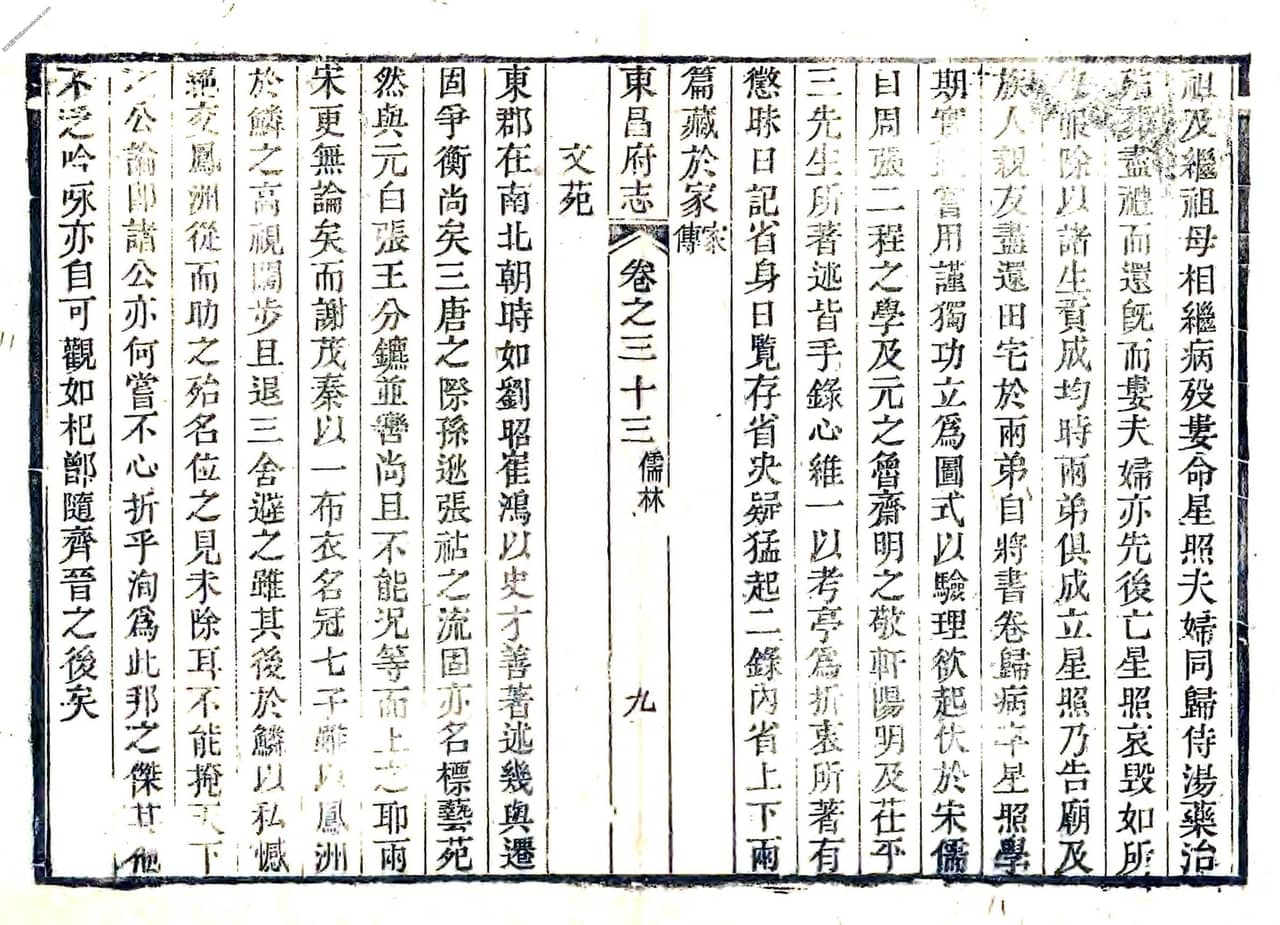 祖及繼祖母相繼病歿婁命星照夫婦同歸侍湯藥治
盡禮而還旣而婁夫婦亦先後亡星照哀毀如所
服除以諸生貢成均時兩弟俱成立星照乃告廟及
族人親友盡還田宅於兩弟自將書卷歸病卒星照學
期實嘗用謹獨功立爲圖式以驗理欲起伏於宋儒
曰周張二程之學及元之魯齋明之敬軒陽明及茌平
三先生所著述皆手錄心維一以考亭爲折衷所著有
懲昧日記省身日覽存省決疑猛起二錄內省上下兩
篇藏於家家傳
東昌府志 卷之三十三 儒林 九
文苑
東郡在南北朝時如劉昭崔鴻以史才善著述幾與遷
固爭衡尚矣三唐之際孫逖張祜之流固亦名標藝苑
然與元白張王分鑣並轡尚且不能况等而上之耶雨
宋更無論矣而謝茂秦以一布衣名冠七子雖以鳳洲
於鱗之高視闊步且退三舍避之雖其後於鱗以私憾
絕交鳳洲從而助之殆名位之見未除耳不能掩天下
之公論卽諸公亦何嘗不心折乎洵爲此邦之傑其他
不乏吟咏亦自可觀如杞鄫隨齊晉之後矣